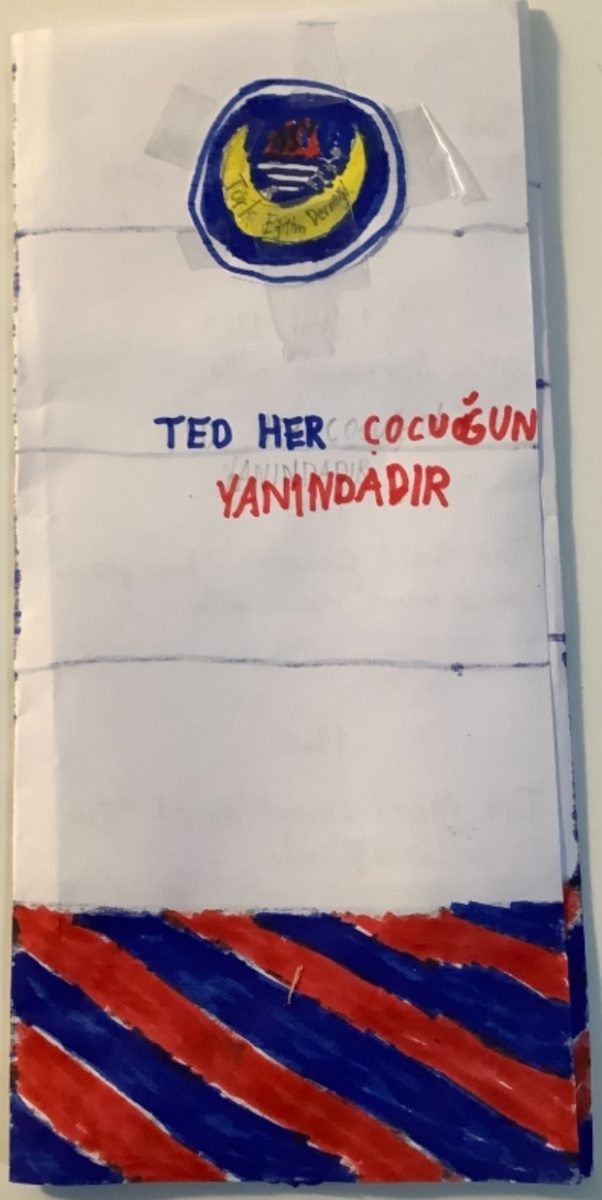 Türk Eğitim Derneği
TED HER ÇOCUĞUN
YANINDADIR